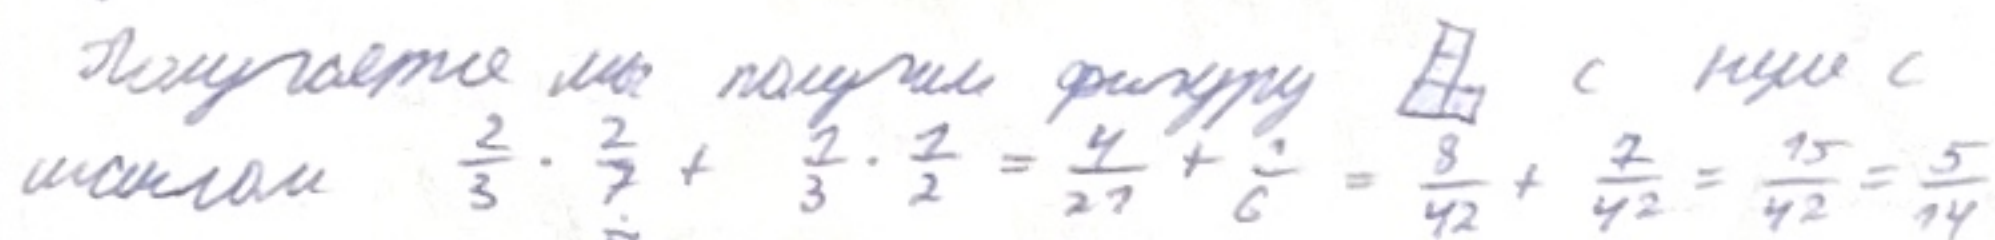 Получается мы получим фигуру с нуля с
шансом 2/3 · 2/7 + 1/3 · 1/2 = 4/21 + 1/6 = 8/42 + 7/42 = 15/42 = 5/14